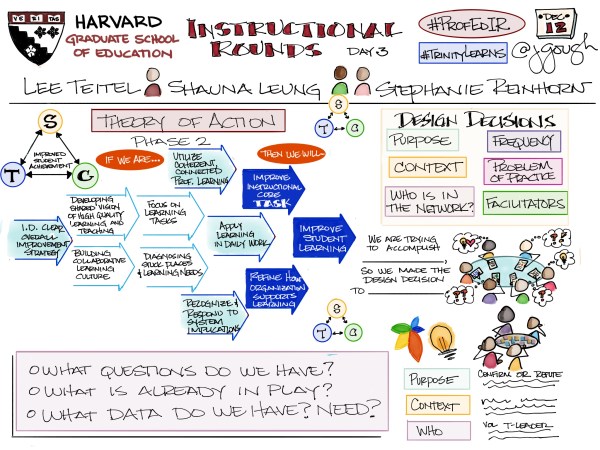 VE RI TAS
HARVARD
GRADUATE SCHOOL
OF EDUCATION
INSTRUCTIONAL
ROUNDS
DAY 3
#PROFEDIR
#TRINITYLEARNS
DEC
12
@jgough
LEE TEITEL
SHAUNA LEUNG
STEPHANIE REINHORN
THEORY OF ACTION
PHASE 2
S
T
C
IMPROVED
STUDENT
ACHIEVEMENT
S
T
C
IF WE ARE...
THEN WE WILL...
I.D. CLEAR
OVERALL
IMPROVEMENT
STRATEGY
DEVELOPING
SHARED VISION
OF HIGH QUALITY
LEARNING AND
TEACHING
BUILDING
COLLABORATIVE
LEARNING
CULTURE
FOCUS ON
LEARNING
TASKS
DIAGNOSING
STUCK PLACES
& LEARNING NEEDS
UTILIZE
COHERENT,
CONNECTED
PROF. LEARNING
APPLY
LEARNING
IN DAILY WORK
RECOGNIZE &
RESPOND TO
SYSTEM
IMPLICATIONS
IMPROVE
INSTRUCTIONAL
CORE
TASK
IMPROVE
STUDENT
LEARNING
REFINE HOW
ORGANIZATION
SUPPORTS
LEARNING
S
T
C
DESIGN DECISIONS
PURPOSE
FREQUENCY
CONTEXT
PROBLEM
OF PRACTICE
WHO IS IN
THE NETWORK?
FACILITATORS
WE ARE TRYING
TO ACCOMPLISH
SO WE MADE THE
DESIGN DECISION
TO
WHAT QUESTIONS DO WE HAVE?
WHAT IS ALREADY IN PLAY?
WHAT DATA DO WE HAVE? NEED?
PURPOSE
CONFIRM OR REFUTE
CONTEXT
WHO
VOL T-LEADER